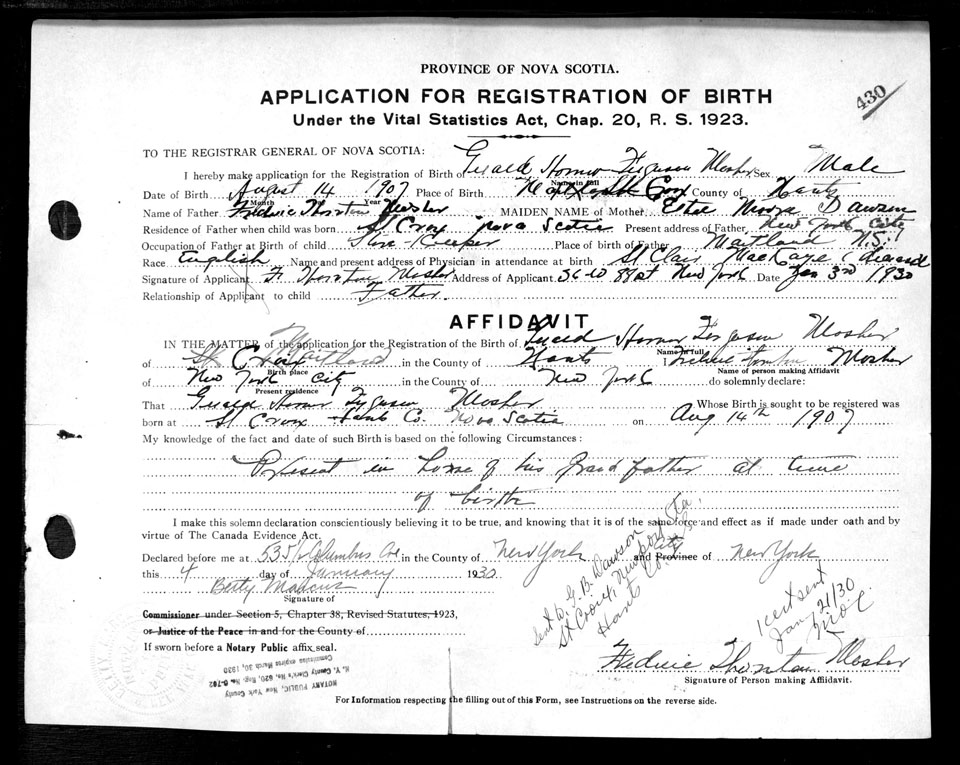 PROVINCE OF NOVA SCOTIA.
430
APPLICATION FOR REGISTRATION OF BIRTH
Under the Vital Statistics Act, Chap. 20, R. S. 1923.
TO THE REGISTRAR GENERAL OF NOVA SCOTIA:
I hereby make application for the Registration of Birth of Gerald Homer Ferguson Mosher Sex Male
Name in full
Date of Birth August 14 1907 Place of Birth Croix County of Hants
Month Year
Name of Father Frederic Thornton Mosher MAIDEN NAME of Mother Moore Dawson
Residence of Father when child was born St Croix Nova Scotia Present address of Father New York City
Occupation of Father at Birth of child Keeper Place of birth of Father Maitland N.S.
Race English Name and present address of Physician in attendance at birth St Clair MacKaye
Signature of Applicant F. Thornton Mosher Address of Applicant New York Date Jan 3rd 1930
Relationship of Applicant to child Father.
AFFIDAVIT
IN THE MATTER of the application for the Registration of the Birth of Gerald Homer Ferguson Mosher
Name in full
of St Croix Maitland in the County of Hants I Thornton Mosher
Birth place Name of person making Affidavit
of New York City in the County of New York do solemnly declare:
Present residence
That Gerald Homer Ferguson Mosher Whose Birth is sought to be registered was
born at St Croix Hants Co. Nova Scotia on Aug 14th 1907
My knowledge of the fact and date of such Birth is based on the following Circumstances:
Present in home of his Grandfather at time
of birth
I make this solemn declaration conscientiously believing it to be true, and knowing that it is of the same force and effect as if made under oath and by
virtue of The Canada Evidence Act.
Declared before me at 535 Columbus Ave in the County of New York and Province of New York
City
this 4 day of January 1930
Betty Marcus
Signature of
Commissioner under Section 5, Chapter 38, Revised Statutes, 1923,
or Justice of the Peace in and for the County of
If sworn before a Notary Public affix seal.
Sent to G. B. Dawson
St Croix, Newport Sta.
Hants Co. N.S.
1 cert sent
Jan 21/30
Frederic Thornton Mosher
Signature of Person making Affidavit.
NOTARY PUBLIC, New York County
N. Y. County Clerk's No. 820, Reg. No. 0-702
Commission expires March 30, 1930
For Information respecting the filling out of this Form, see Instructions on the reverse side.